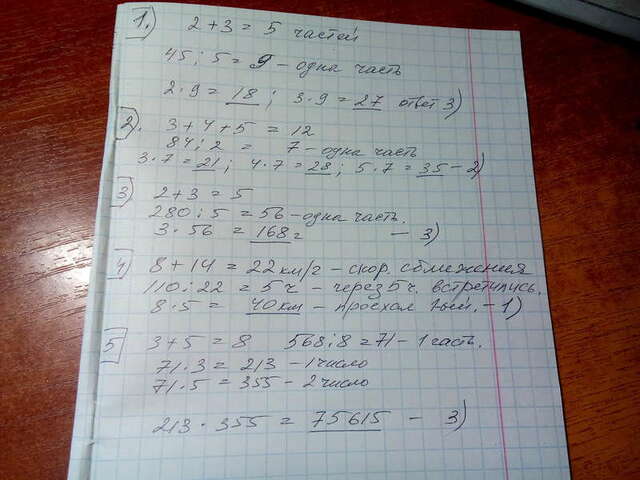 1. 2+3 = 5 частей
45 : 5 = 9 – одна часть
2·9 = 18 ; 3·9 = 27 ответ 3)
2). 3+4+5 = 12
84 : 2 = 7 – одна часть
3·7 = 21 ; 4·7 = 28 ; 5·7 = 35 – 2)
3) 2+3 = 5
280 : 5 = 56 – одна часть.
3·56 = 168 г – 3)
4) 8+14 = 22 км/г – скор. сближения
110 : 22 = 5 ч – через 5 ч. встретились.
8·5 = 40 км – проехал 1ый. – 1)
5) 3+5 = 8 568 : 8 = 71 – 1 часть.
71·3 = 213 – 1 число
71·5 = 355 – 2 число
213·355 = 75615 – 3)